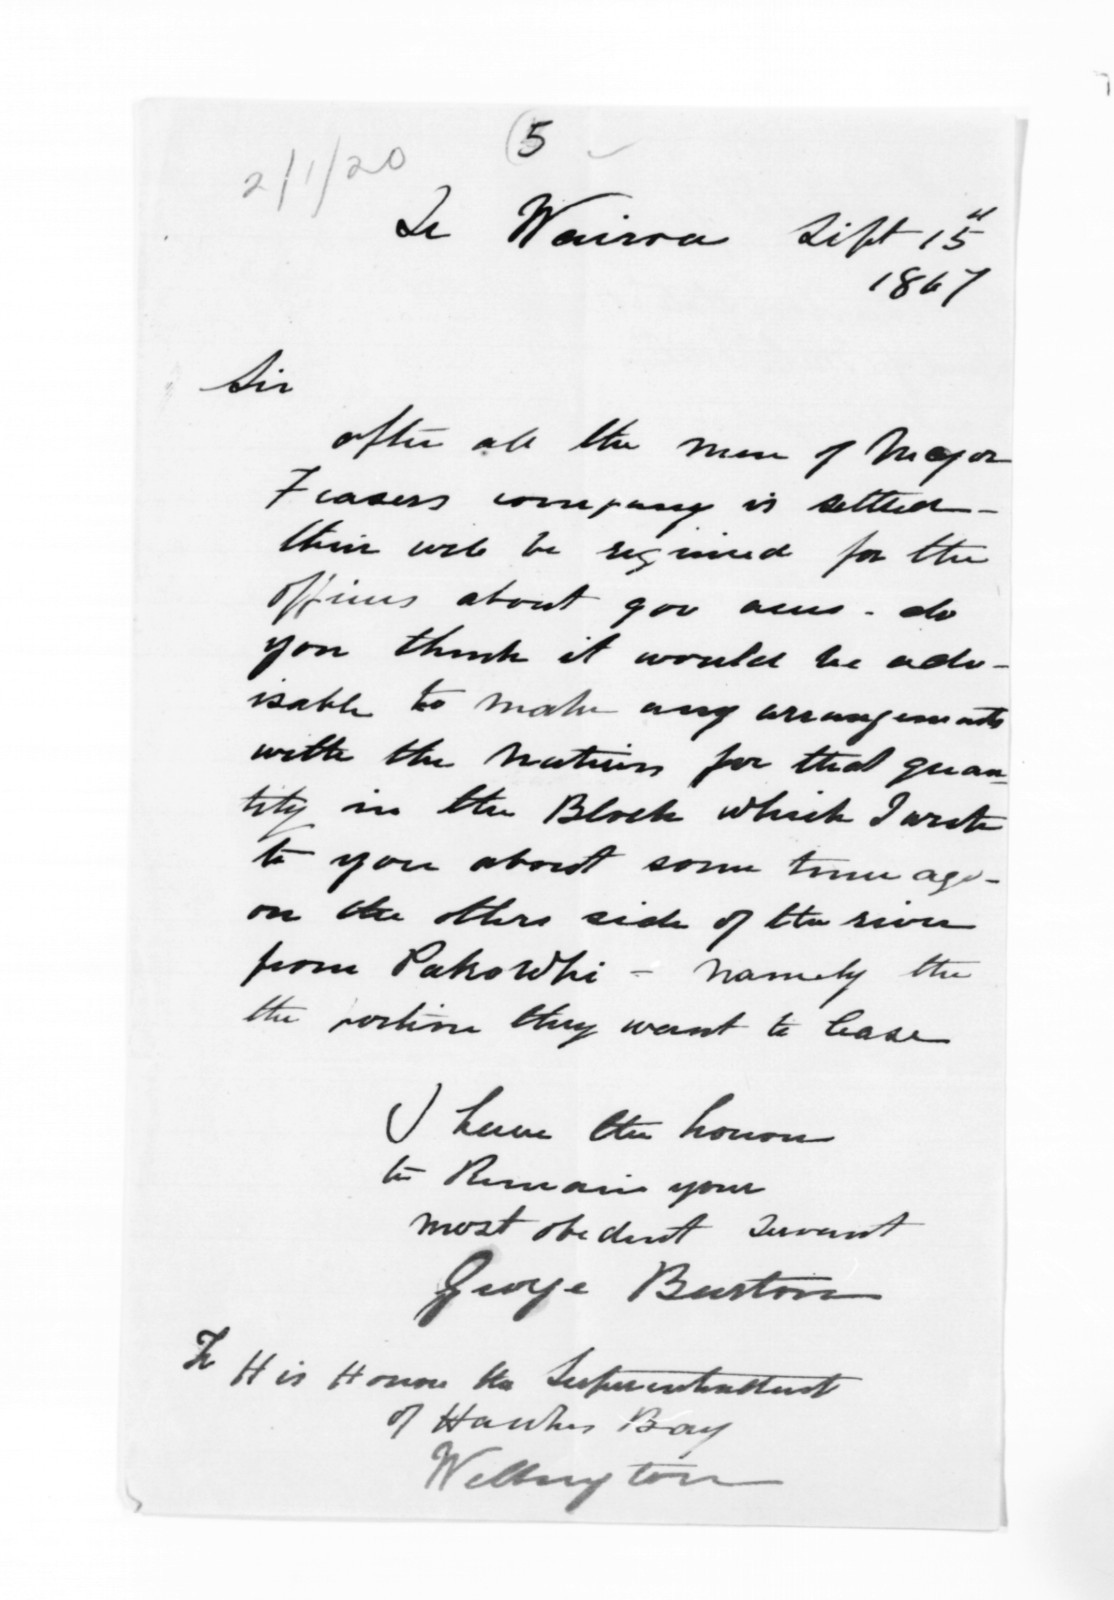 5
2/1/20
Te Wairoa Sept 15th
1867
Sir
after all the men of Major
Frasers company is settled -
thir will be reqired for the
officers about 900 acres - do
you think it would be adv-
isable to make any arrangements
with the Natives for that quan-
tity in the Block which I wrote
to you about some time ago -
on the other side of the river
from Pakowhi - namely the
the portion they want to lease
I have the honor
to Remain your
most obedient servant
George Burton
To His Honor the Superintendent
of Hawkes Bay
Wellington